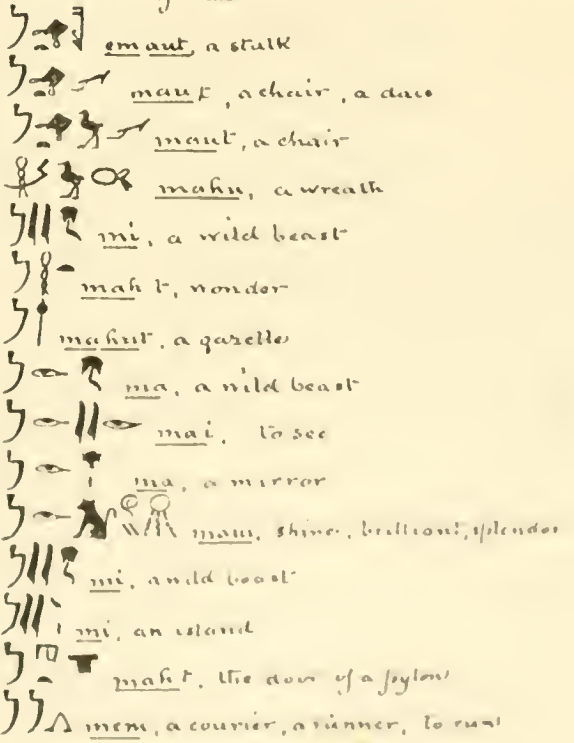 emaut, a stalk
maut, a chair, a dais
maut, a chair
mahu, a wreath
mi, a wild beast
mah t, wonder
mahut, a gazelle
ma, a wild beast
mai, to see
ma, a mirror
maui, shine, brilliant, splendor
mi, a wild beast
mi, an island
mah t, the door of a pylon
mem, a courier, a runner, to run